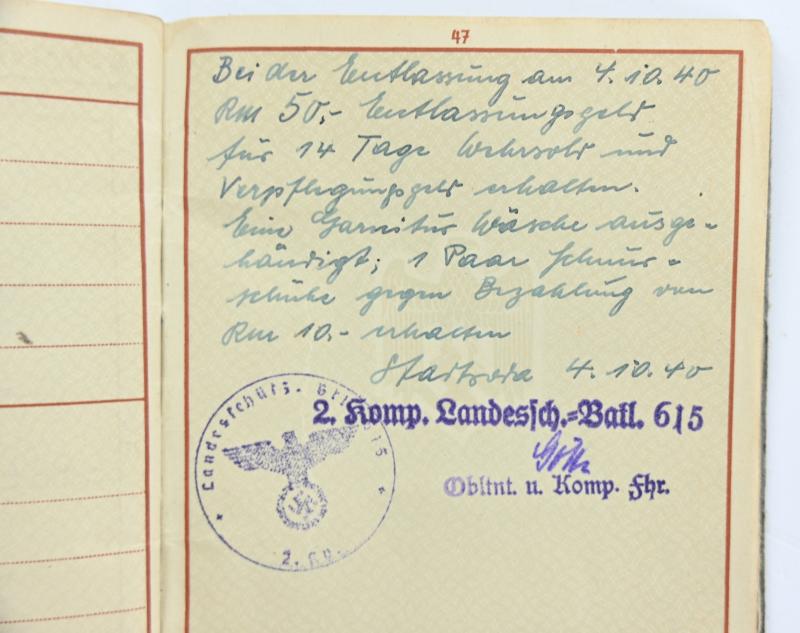 47
Bei der Entlassung am 4.10.40
RM 50,- Entlassungsgeld
für 14 Tage Wehrsold und
Verpflegungsgeld erhalten.
Eine Garnitur Wäsche ausge-
händigt; 1 Paar Schnür-
schuhe gegen Bezahlung von
RM 10.- erhalten
Stadtroda 4.10.40
2. Komp. Landessch.=Batl. 615
Obltnt. u. Komp. Fhr.
Landesschütz. 615
2. Kp.